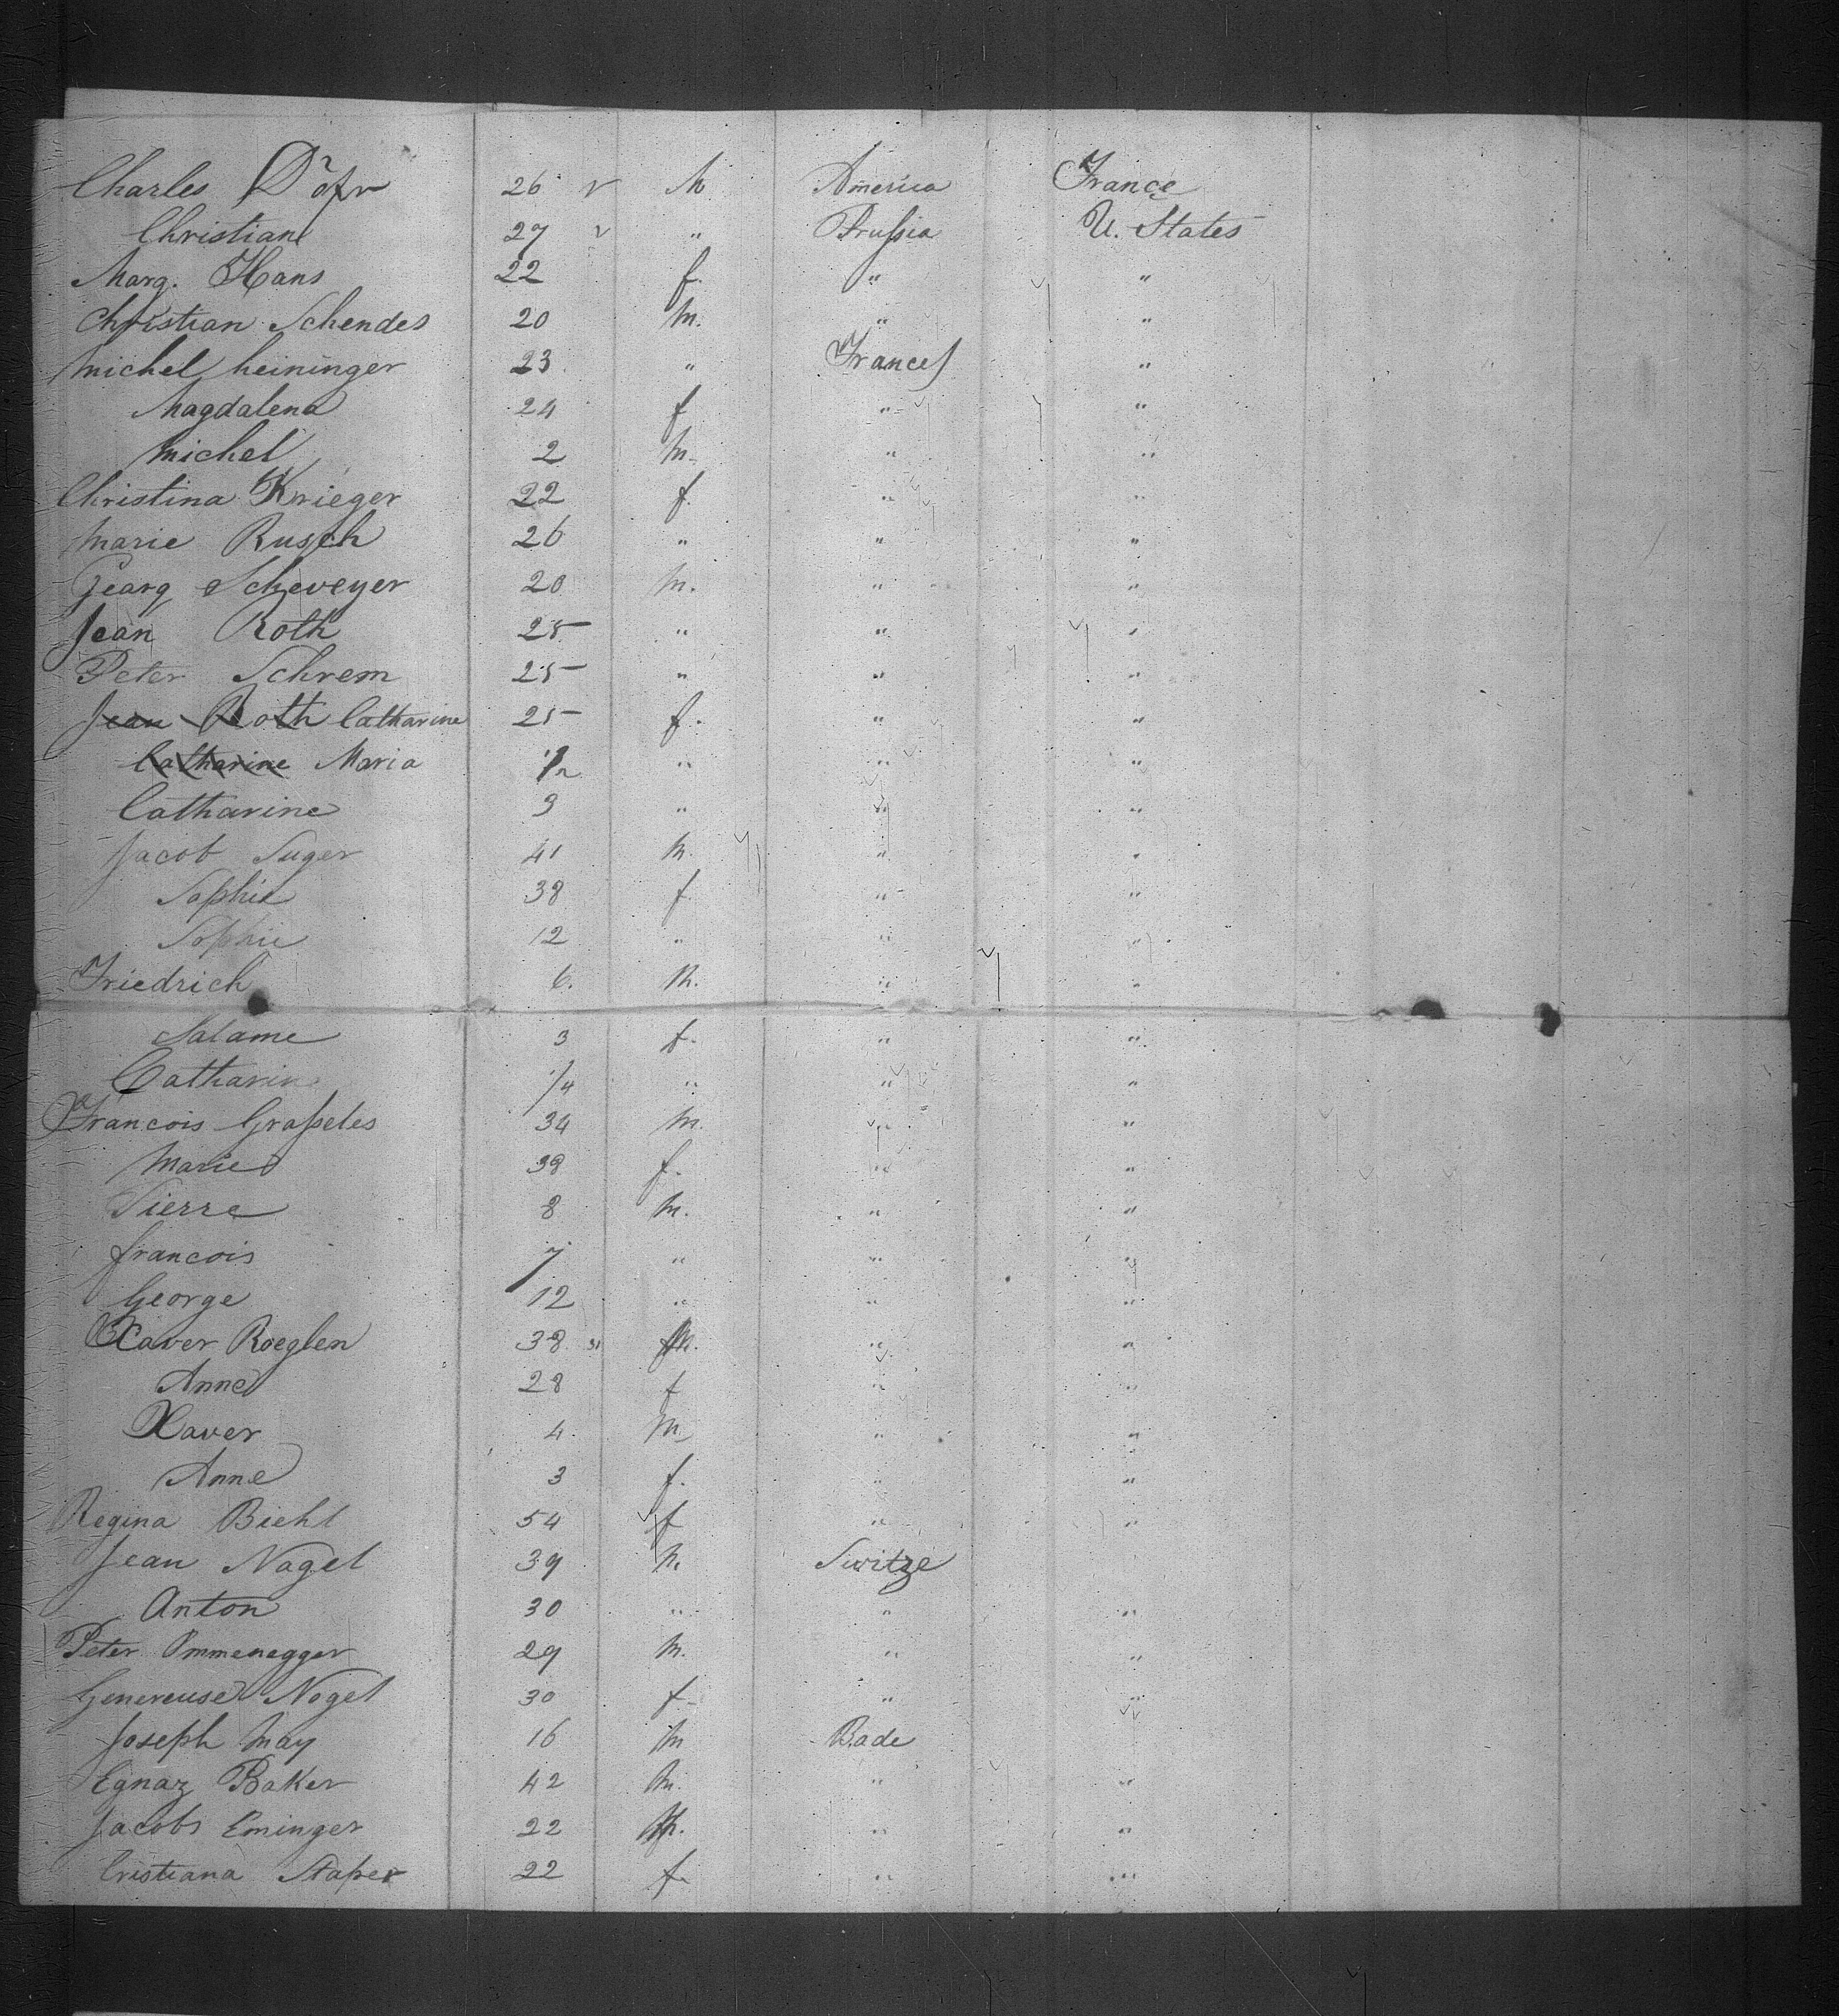 Charles Döfr 26 v M America France
Christian 27 v " Prussia U. States
Marg. Hans 22 f. " "
Christian Schendes 20 M. " "
Michel heininger 23 " France "
Magdalena 24 f " "
Michel 2 M. " "
Christina Krieger 22 f. " "
Marie Rusch 26 " " "
Gearg Scheveyer 20 M. " "
Jean Roth 25 " " "
Peter Schrem 25 " " "
Jean Roth Catharine 25 f. " "
Catharine Maria 1/2 " " "
Catharine 3 " " "
Jacob Suger 41 M. " "
Sophie 38 f " "
Sophie 12 " " "
Friedrich 6. M. " "
Salame 3 f. " "
Catharin 1/4 " " "
Francois Grasseles 34 M. " "
Marie 38 f. " "
Pierre 8 M. " "
francois 7 " " "
George 12 " " "
Xaver Roeglen 38 M. " "
Anne 28 f " "
Xaver 4. M " "
Anne 3 f. " "
Regina Biehl 54 f " "
Jean Nagel 39 M. Switze
Anton 30 " " "
Peter Ommenegger 29 M. " "
Genereuse Nogel 30 f " "
Joseph May 16 M Bade "
Egnaz Baker 42 M. " "
Jacobs Eminger 22 M. " "
Cristiana Staper 22 f. " "